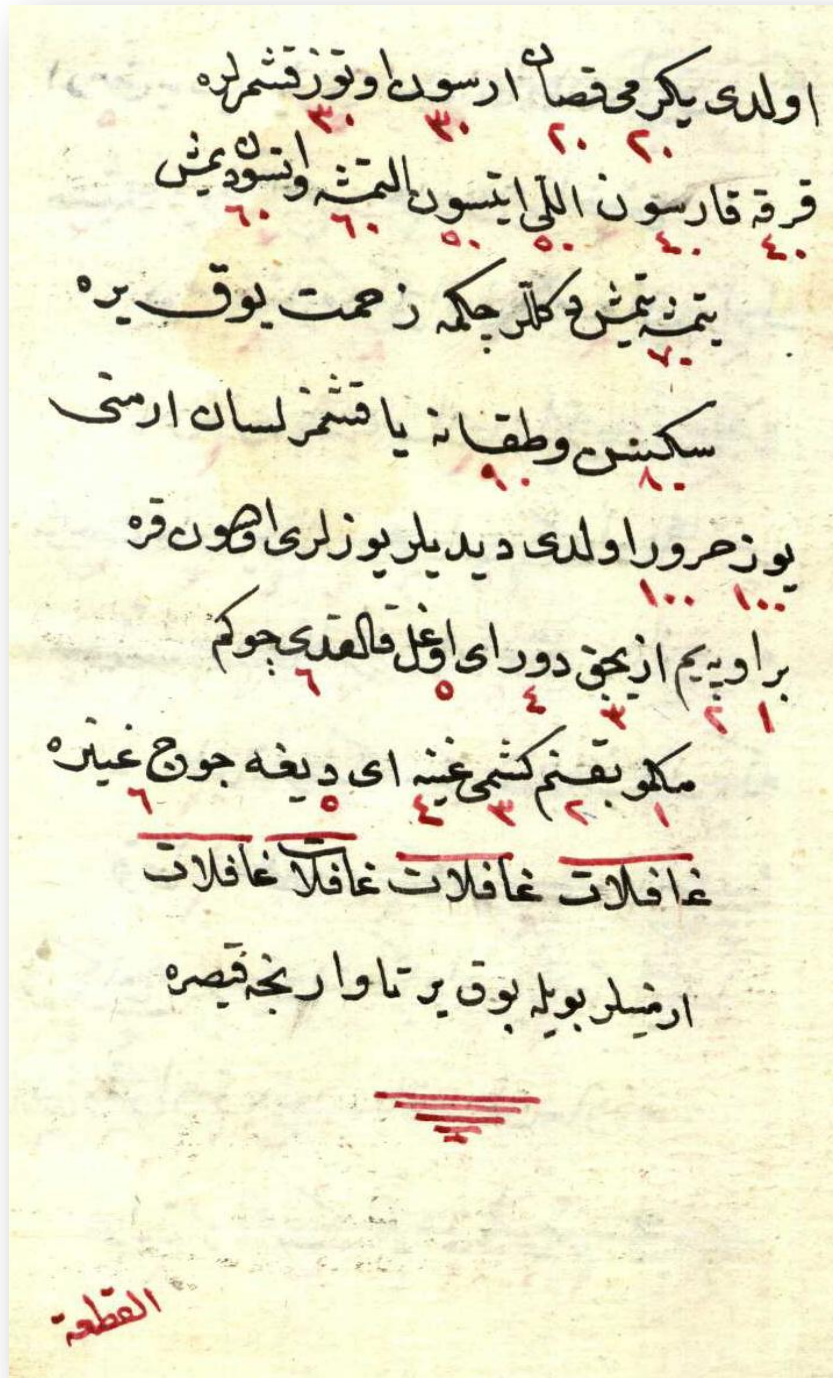 اولدی یکرمی قصان ارسون اوتوز قشمرلره
٢٠ ٢٠ ٣٠ ٣٠
قرقه قارسون اللی ایتسون التمشه واتسون دیمش
٤٠ ٤٠ ٥٠ ٥٠ ٦٠ ٦٠
یتمشه یتمش دکلر چکمه زحمت یوق یره
٧٠
سکسن وطقسانه یاقشمز لسان ارمنی
٨٠ ٩٠
یوز حرور اولدی دیدیلر یوزلری اوهون قره
١٠٠ ١٠٠
بر اوپه یم ازیجق دور ای اوغل قالقدی چوکم
١ ٢ ٣ ٤ ٥ ٦
مکو بقنم کشمی غینه ای دیغه جوج غیزه
١ ٢ ٣ ٤ ٥ ٦
غافلات غافلات غافلات غافلات
ارمنیلر بویله بوق یر تا وارنجه قیصره
القطعة